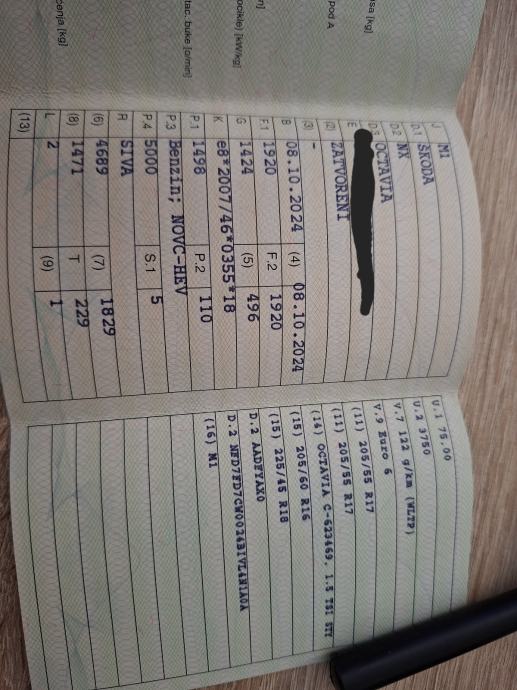 asa [kg]
pod A
n]
ocikle) [kW/kg]
tac. buke [o/min]
ćenja [kg]
J M1
D.1 ŠKODA
D.2 NX
D.3 OCTAVIA
E
(2) ZATVORENI
(3) -
B 08.10.2024 (4) 08.10.2024
F.1 1920 F.2 1920
G 1424 (5) 496
K e8*2007/46*0355*18
P.1 1498 P.2 110
P.3 Benzin; NOVC-HEV
P.4 5000 S.1 5
R SIVA
(6) 4689 (7) 1829
(8) 1471 T 229
L 2 (9) 1
(13)
U.1 75.00
U.2 3750
V.7 122 g/km (WLTP)
V.9 Euro 6
(11) 205/55 R17
(11) 205/55 R17
(14) OCTAVIA C-623469, 1.5 TSI
(15) 205/60 R16
(15) 225/45 R18
D.2 AADFYAX0
D.2
(16) M1